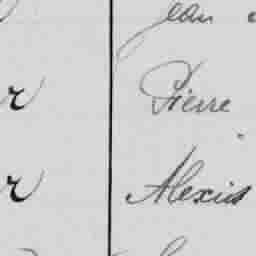 Jean
r Pierre
r Alexis